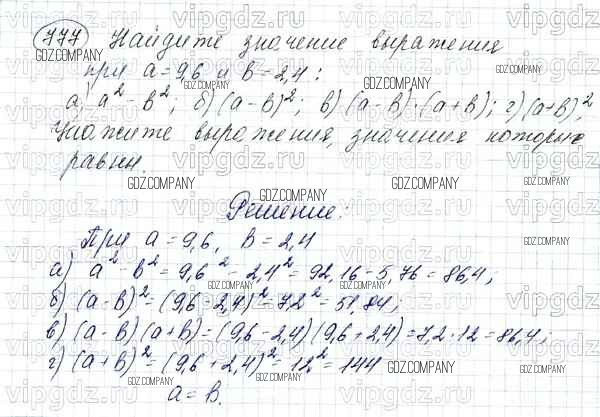 777 Найдите значение выражения
при a = 9,6 и b = 2,4:
а) a² - b²; б) (a - b)²; в) (a - b)·(a + b); г) (a + b)².
Укажите выражения, значения которых
равны.
Решение:
При a = 9,6, b = 2,4
а) a² - b² = 9,6² - 2,4² = 92,16 - 5,76 = 86,4;
б) (a - b)² = (9,6 - 2,4)² = 7,2² = 51,84;
в) (a - b)(a + b) = (9,6 - 2,4)(9,6 + 2,4) = 7,2·12 = 86,4;
г) (a + b)² = (9,6 + 2,4)² = 12² = 144
а = в.
vipgdz.ru
GDZ.COMPANY